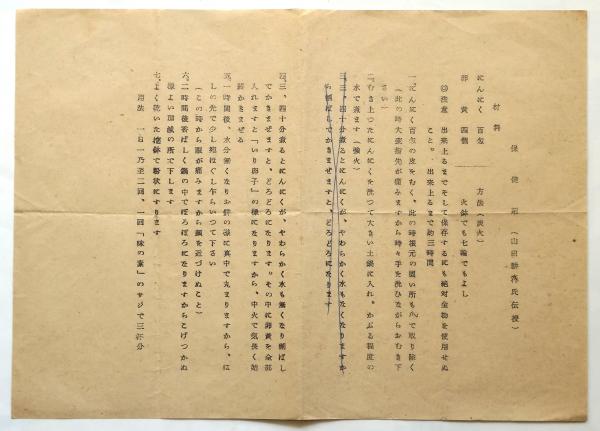 保健 （山田耕筰氏伝授）
材料
にんにく 百匁 方法（炭火）
卵黄 四個 火鉢でも七輪でもよし
◎注意 出来上るまでそして保存するにも絶対金物を使用せぬ
こと。出来上るまで約三時間
一、にんにく百匁の皮をむく、此の時根元の固い所も て取り除く
（此の時大変指先が痛みますから時々手を洗ひながらおむき下
さい）
二、むき上つたにんにくを洗つて大きい土鍋に入れ、かぶる程度の
水で煮ます（強火）
三、三、四十分煮るとにんにくが、やわらかく水もなくなりますか
ら ばしでかきまぜますと、どろどろになります
三、三、四十分煮るとにんにくが、やわらかく水も無くなり ばし
でかきまぜますと、どろどろになります。その中に卵黄を全部
入れますと「いり卵子」の様になりますから、中火で気長く始
終かきまぜる
五、一時間後、水分無くなりお餅の様に真中で丸まりますから、は
しの先で少し宛ほぐし乍らいつて下さい
（この時から眼が痛みますから顔を近づけぬこと）
六、二時間後香ばしく鍋の中でぽろぽろになりますからこげつかぬ
様よい加減の所で下します
七、よく乾いた擂鉢で粉状にすります
用法 一日一乃至二回、一回「味の素」のサジで三杯分